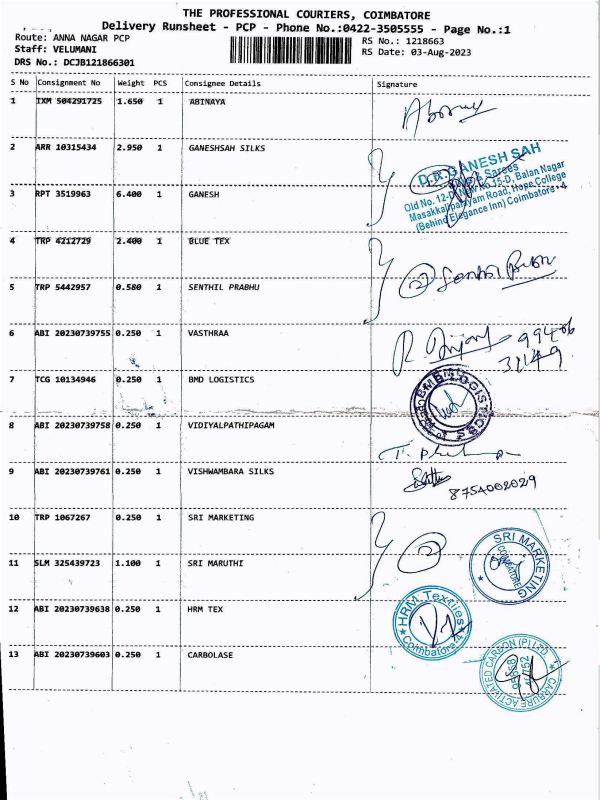 THE PROFESSIONAL COURIERS, COIMBATORE
Delivery Runsheet - PCP - Phone No.:0422-3505555 - Page No.:1
Route: ANNA NAGAR PCP
RS No.: 1218663
Staff: VELUMANI
RS Date: 03-Aug-2023
DRS No.: DCJB121866301
S No Consignment No Weight PCS Consignee Details Signature
1 IXM 504291725 1.650 1 ABINAYA
2 ARR 10315434 2.950 1 GANESHSAH SILKS
D.R.GANESH SAH
Sarees
Old No. 12- No.15-D, Balan Nagar
Masakkalipalayam Road, Hope College
(Behind Elegance Inn) Coimbatore-4
3 RPT 3519963 6.400 1 GANESH
4 TRP 4212729 2.400 1 BLUE TEX
5 TRP 5442957 0.580 1 SENTHIL PRABHU
6 ABI 20230739755 0.250 1 VASTHRAA
7 TCG 10134946 0.250 1 BMD LOGISTICS
LOGISTICS
8 ABI 20230739758 0.250 1 VIDIYALPATHIPAGAM
9 ABI 20230739761 0.250 1 VISHWAMBARA SILKS
8754002029
10 TRP 1067267 0.250 1 SRI MARKETING
SRI MARKETING
COIMBATORE
11 SLM 325439723 1.100 1 SRI MARUTHI
12 ABI 20230739638 0.250 1 HRM TEX
HRM Textiles
Coimbatore-4
13 ABI 20230739603 0.250 1 CARBOLASE
CARBURE ACTIVATED CARBON (P) LTD